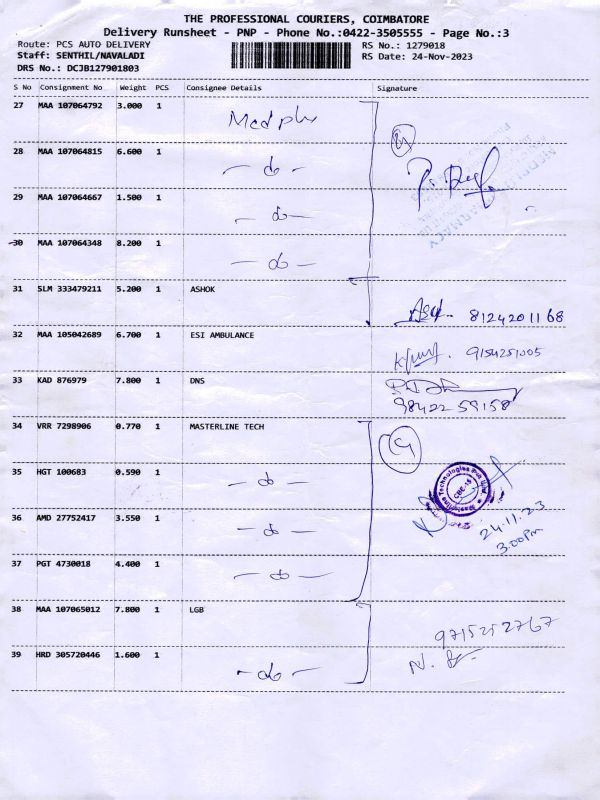 THE PROFESSIONAL COURIERS, COIMBATORE
Delivery Runsheet - PNP - Phone No.:0422-3505555 - Page No.:3
Route: PCS AUTO DELIVERY RS No.: 1279018
Staff: SENTHIL/NAVALADI RS Date: 24-Nov-2023
DRS No.: DCJB127901803
S No Consignment No Weight PCS Consignee Details Signature
27 MAA 107064792 3.000 1
28 MAA 107064815 6.600 1 - do -
29 MAA 107064667 1.500 1 - do -
30 MAA 107064348 8.200 1 - do -
31 SLM 333479211 5.200 1 ASHOK 8124201168
32 MAA 105042689 6.700 1 ESI AMBULANCE 9154251005
33 KAD 876979 7.800 1 DNS
98422 59158
34 VRR 7298906 0.770 1 MASTERLINE TECH
35 HGT 100683 0.590 1 - do -
36 AMD 27752417 3.550 1 - do - 24.11.23
3.00Pm
37 PGT 4730018 4.400 1 - do -
38 MAA 107065012 7.800 1 LGB 9715252767
39 HRD 305720446 1.600 1 - do -